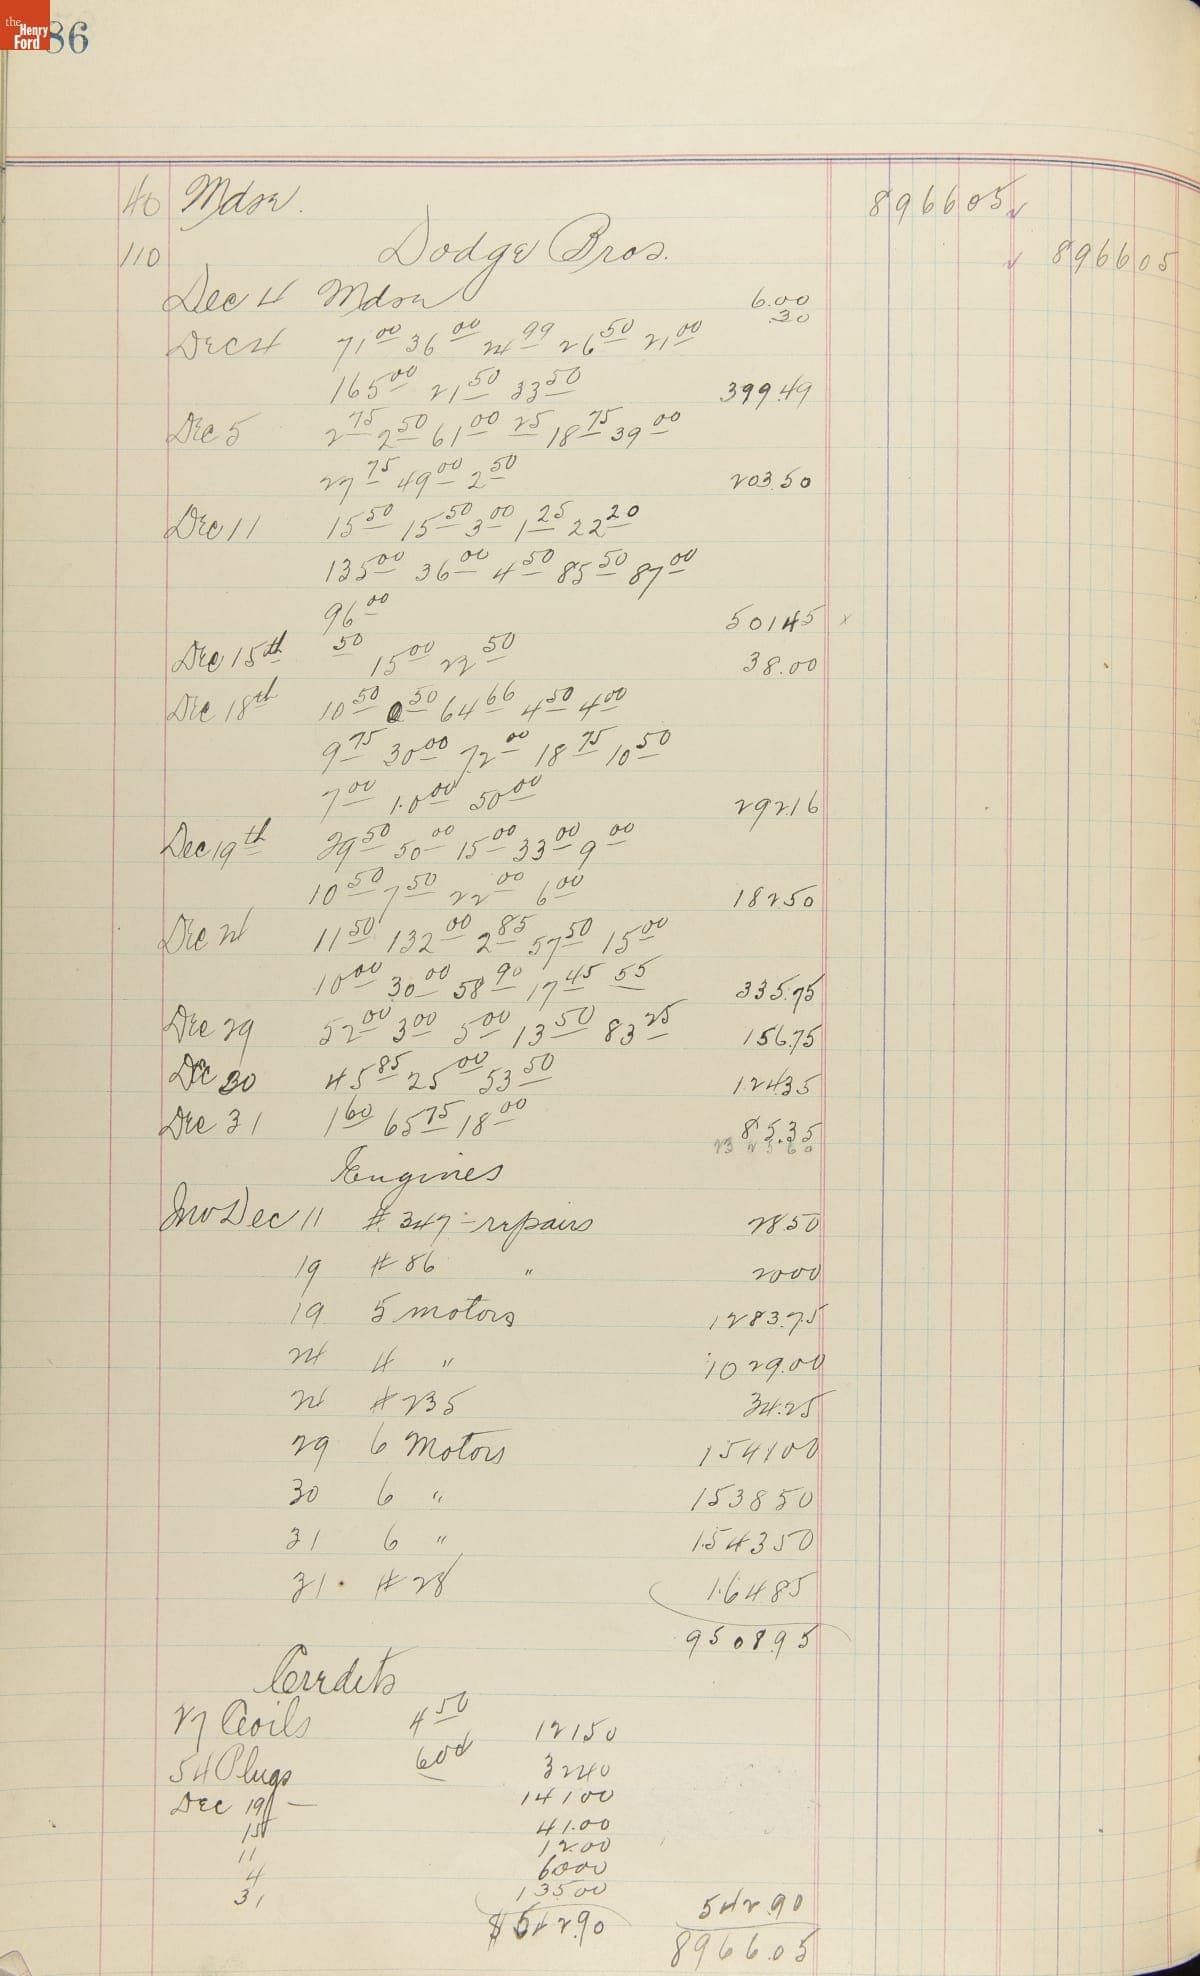 the Henry Ford
86
40 Mdse. 8966 05 ✓
110 Dodge Bros. ✓ 8966 05
Dec 4 Mdse 6.00
.30
Dec 4 71 00 36 00 24 99 26 50 21 00
165 00 21 50 33 50 399.49
Dec 5 2 75 2 50 61 00 25 18 75 39 00
27 75 49 00 2 50 203.50
Dec 11 15 50 15 50 3 00 1 25 22 20
135 00 36 00 4 50 85 50 87 00
96 00 501 45 x
Dec 15th 50 15 00 22 50 38.00
Dec 18th 10 50 50 64 66 4 50 4 00
9 75 30 00 72 00 18 75 10 50
7 00 10 00 50 00 292 16
Dec 19th 29 50 50 00 15 00 33 00 9 00
10 50 7 50 22 00 6 00 182 50
Dec 24 11 50 132 00 2 85 57 50 15 00
10 00 30 00 58 90 17 45 55 335.75
Dec 29 52 00 3 00 5 00 13 50 83 25 156.75
Dec 30 45 85 25 00 53 50 124 35
Dec 31 1 60 65 75 18 00 85.35
Engines
Inv Dec 11 # 347 - repairs 28 50
19 # 86 " 20 00
19 5 motors 1283.75
24 4 " 1029.00
24 # 235 34.25
29 6 Motors 1541 00
30 6 " 1538 50
31 6 " 1543 50
31 . # 28 164 85
9508 95
Credits
27 Coils 4 50 121 50
54 Plugs 60¢ 32 40
Dec 19 — 141 00
15 41.00
11 12.00
4 60 00
31 135 00
$ 542.90 542.90
8966.05